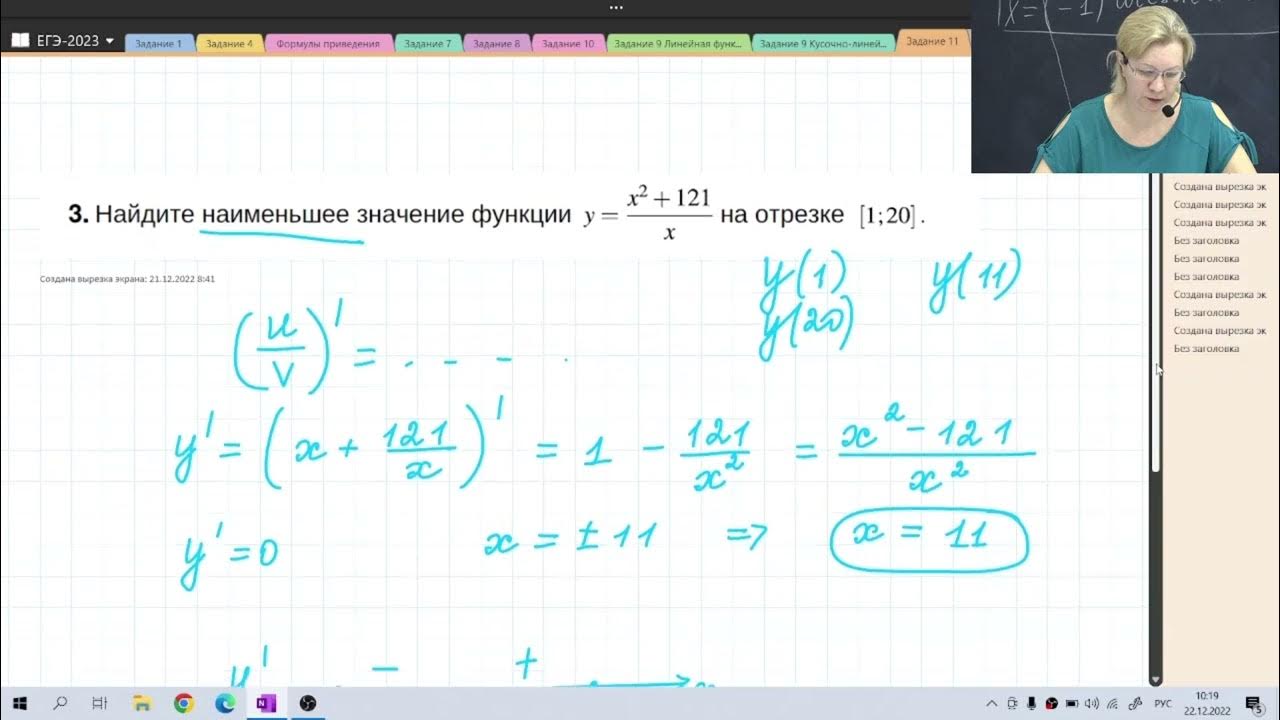 ...
ЕГЭ-2023
Задание 1
Задание 4
Формулы приведения
Задание 7
Задание 8
Задание 10
Задание 9 Линейная функ...
Задание 9 Кусочно-линей...
Задание 11
3. Найдите наименьшее значение функции y = \frac{x^2 + 121}{x} на отрезке [1;20].
Создана вырезка экрана: 21.12.2022 8:41
y(1) y(11)
y(20)
(u/v)' = . - - .
y' = (x + 121/x)' = 1 - 121/x² = x² - 121/x²
y' = 0 x = ±11 => x = 11
y' - +
Создана вырезка эк
Создана вырезка эк
Создана вырезка эк
Без заголовка
Без заголовка
Без заголовка
Создана вырезка эк
Без заголовка
Создана вырезка эк
Без заголовка
РУС
10:19
22.12.2022
5